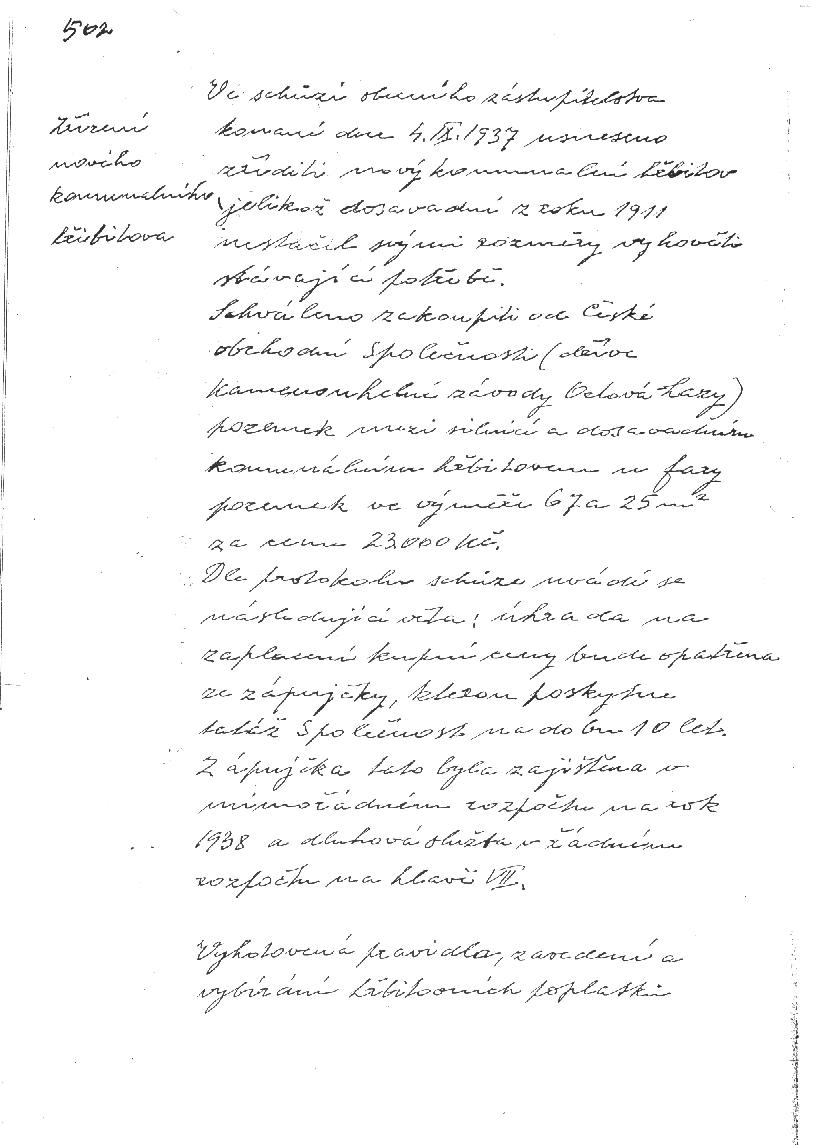 502
Zřízení
nového
komunalního
hřbitova
Ve schůzi obecního zástupitelstva
konané dne 4.IX.1937 usneseno
zříditi nový komunalní hřbitov
jelikož dosavadní z roku 1911
nestačil svými rozměry vyhověti
stávající potřebě.
Schváleno zakoupiti od České
obchodní Společnosti (dříve
kamenouhelné závody Orlová-Lazy)
pozemek mezi silnicí a dosavadním
komunálním hřbitovem u fary
pozemek ve výměře 67a 25m²
za cenu 23.000 Kč.
Dle protokolu schůze uvádí se
následující věta: úhrada na
zaplacení kupní ceny bude opatřena
ze zápujčky, kterou poskytne
tatáž Společnost na dobu 10 let.
Zápujčka tato byla zajištěna v
mimořádném rozpočtu na rok
1938 a dluhová služba v řádném
rozpočtu na hlavě VII.
Vyhotovená pravidla, zavedení a
vybírání hřbitovních poplatků